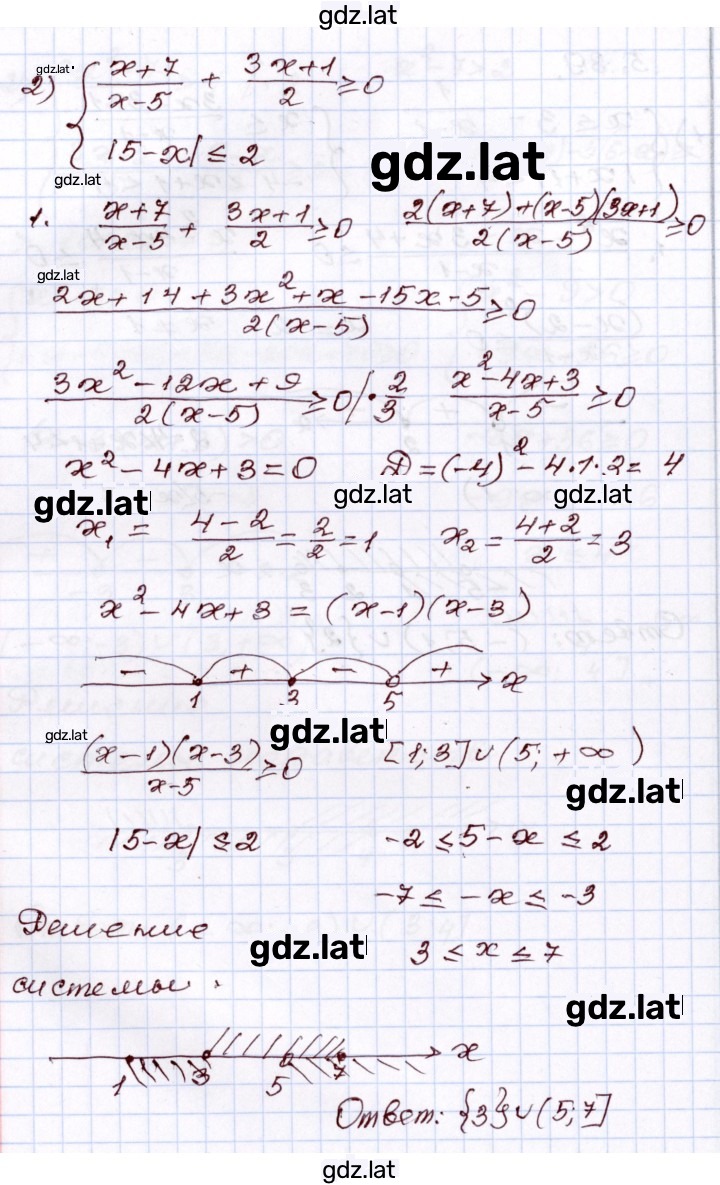 gdz.lat
gdz.lat
2) { (x+7)/(x-5) + (3x+1)/2 ≥ 0
|5-x| ≤ 2
gdz.lat
gdz.lat
1. (x+7)/(x-5) + (3x+1)/2 ≥ 0 (2(x+7)+(x-5)(3x+1))/(2(x-5)) ≥ 0
gdz.lat
(2x+14+3x²+x-15x-5)/(2(x-5)) ≥ 0
(3x²-12x+9)/(2(x-5)) ≥ 0 |·2/3 (x²-4x+3)/(x-5) ≥ 0
x²-4x+3=0 D=(-4)²-4·1·2= 4
gdz.lat gdz.lat gdz.lat
x₁ = (4-2)/2 = 2/2 = 1 x₂ = (4+2)/2 = 3
x²-4x+3 = (x-1)(x-3)
- + - + x
1 3 5
gdz.lat gdz.lat
((x-1)(x-3))/(x-5) ≥ 0 [1;3]∪(5;+∞)
gdz.lat
|5-x| ≤ 2 -2 ≤ 5-x ≤ 2
-7 ≤ -x ≤ -3
Решение
gdz.lat 3 ≤ x ≤ 7
системы:
gdz.lat
1 3 5 7 x
Ответ: {3}∪(5;7]
gdz.lat